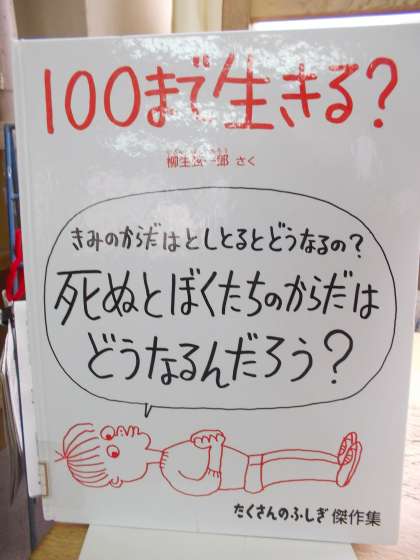 100まで生きる?
柳生弦一郎 さく
きみのからだはとしとるとどうなるの?
死ぬとぼくたちのからだは
どうなるんだろう?
たくさんのふしぎ 傑作集